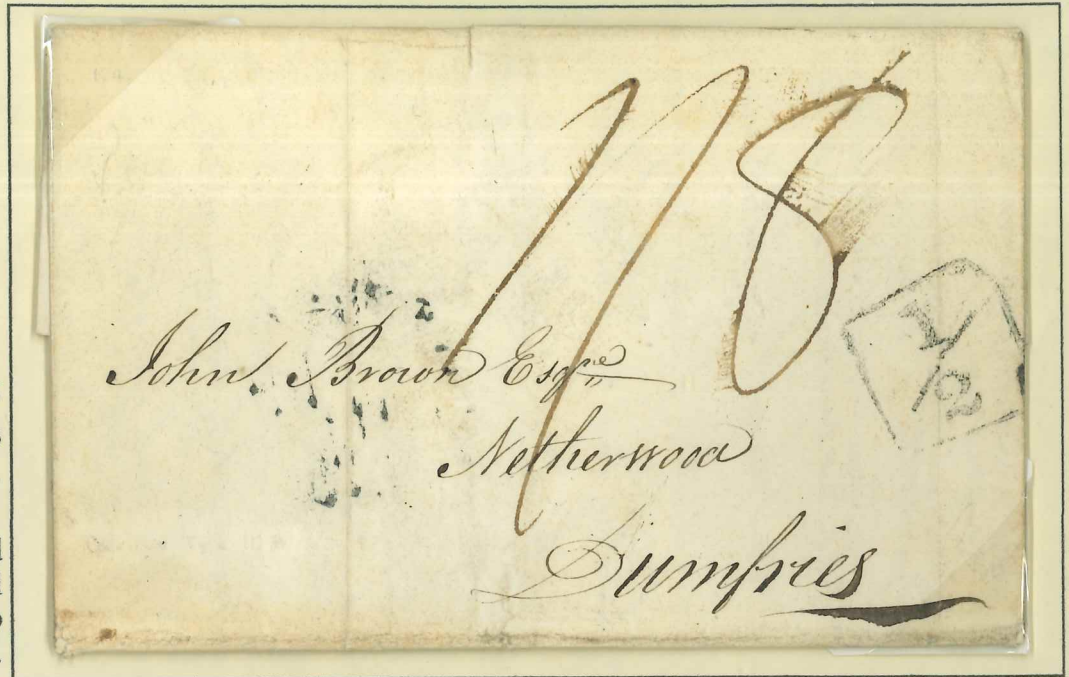 1/8
John Brown Esqre
Netherwood
Dumfries